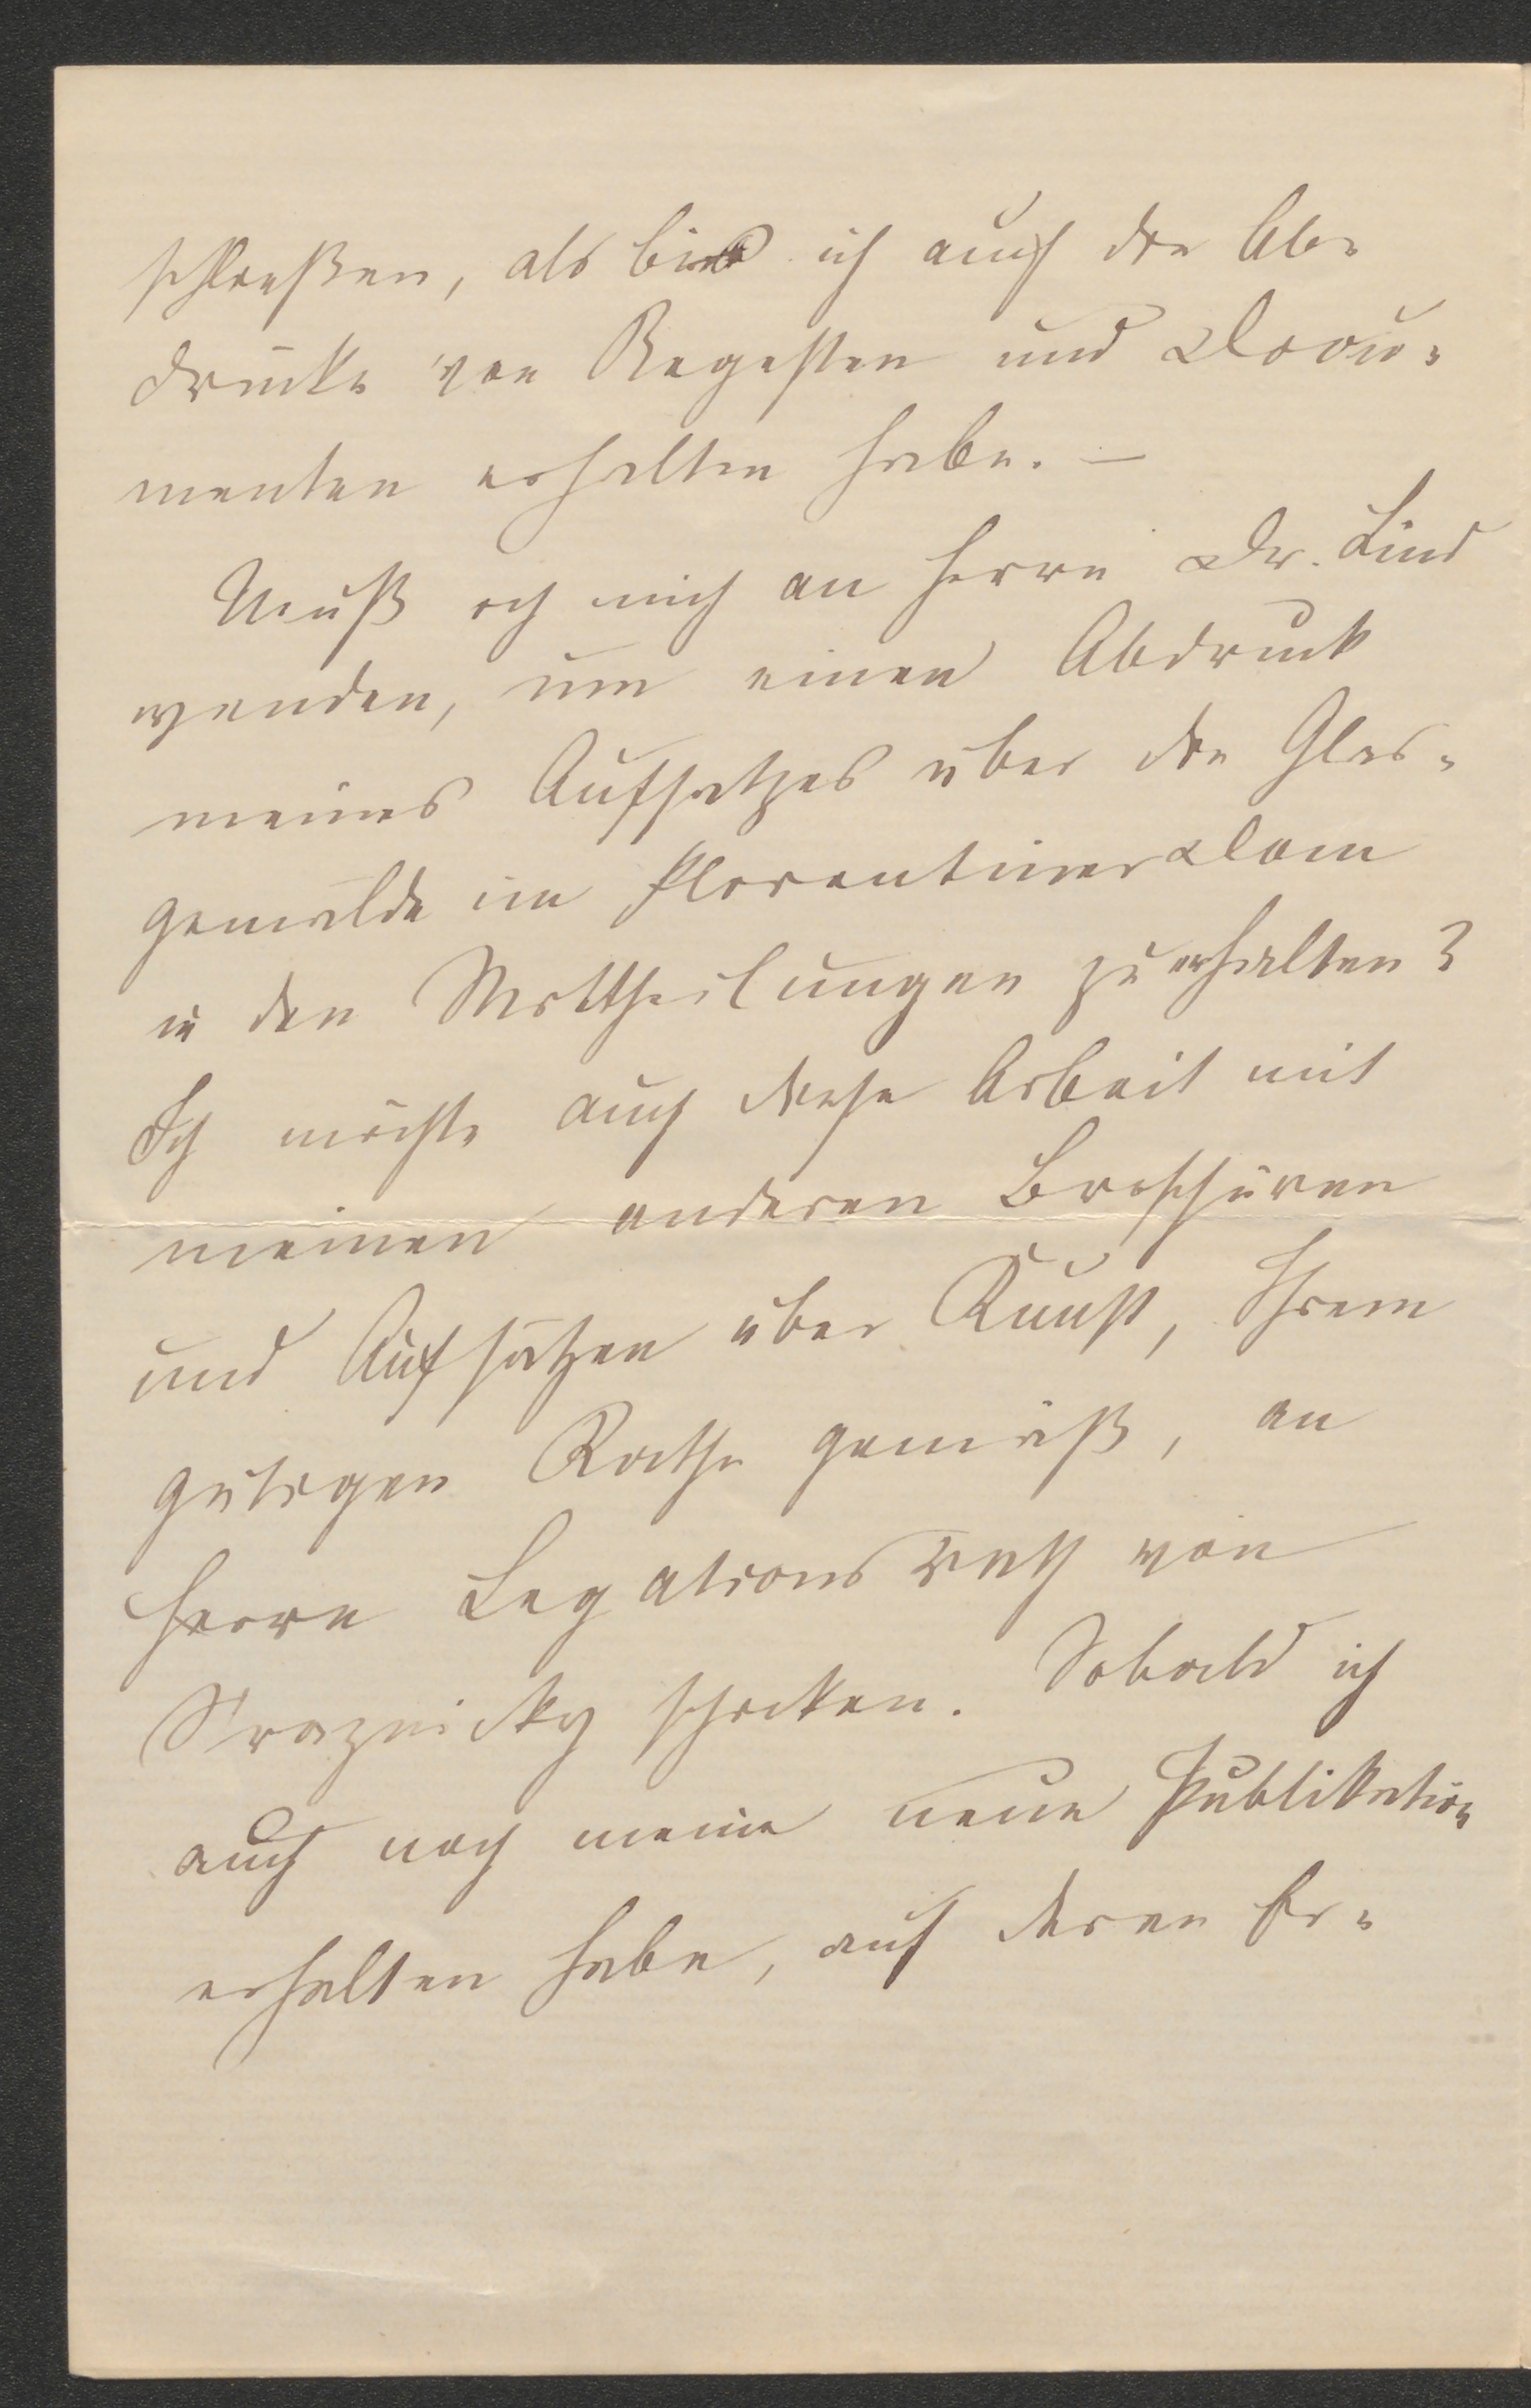 schließen, als bis ich auch die Ab-
drücke von Regesten und Docu-
menten erhalten habe. —
Muß ich mich an Herrn Dr. Lind
wenden, um einen Abdruck
meines Aufsatzes über die Glas-
gemälde im Florentiner Dom
in den Mittheilungen zu erhalten?
Ich möchte auch diese Arbeit mit
meinen anderen Broschüren
und Aufsätzen über Kunst, Ihrem
gütigen Rathe gemäß, an
Herrn Legationsrath von
schicken. Sobald ich
auch noch meine neue Publikation
erhalten habe, auf deren Er-